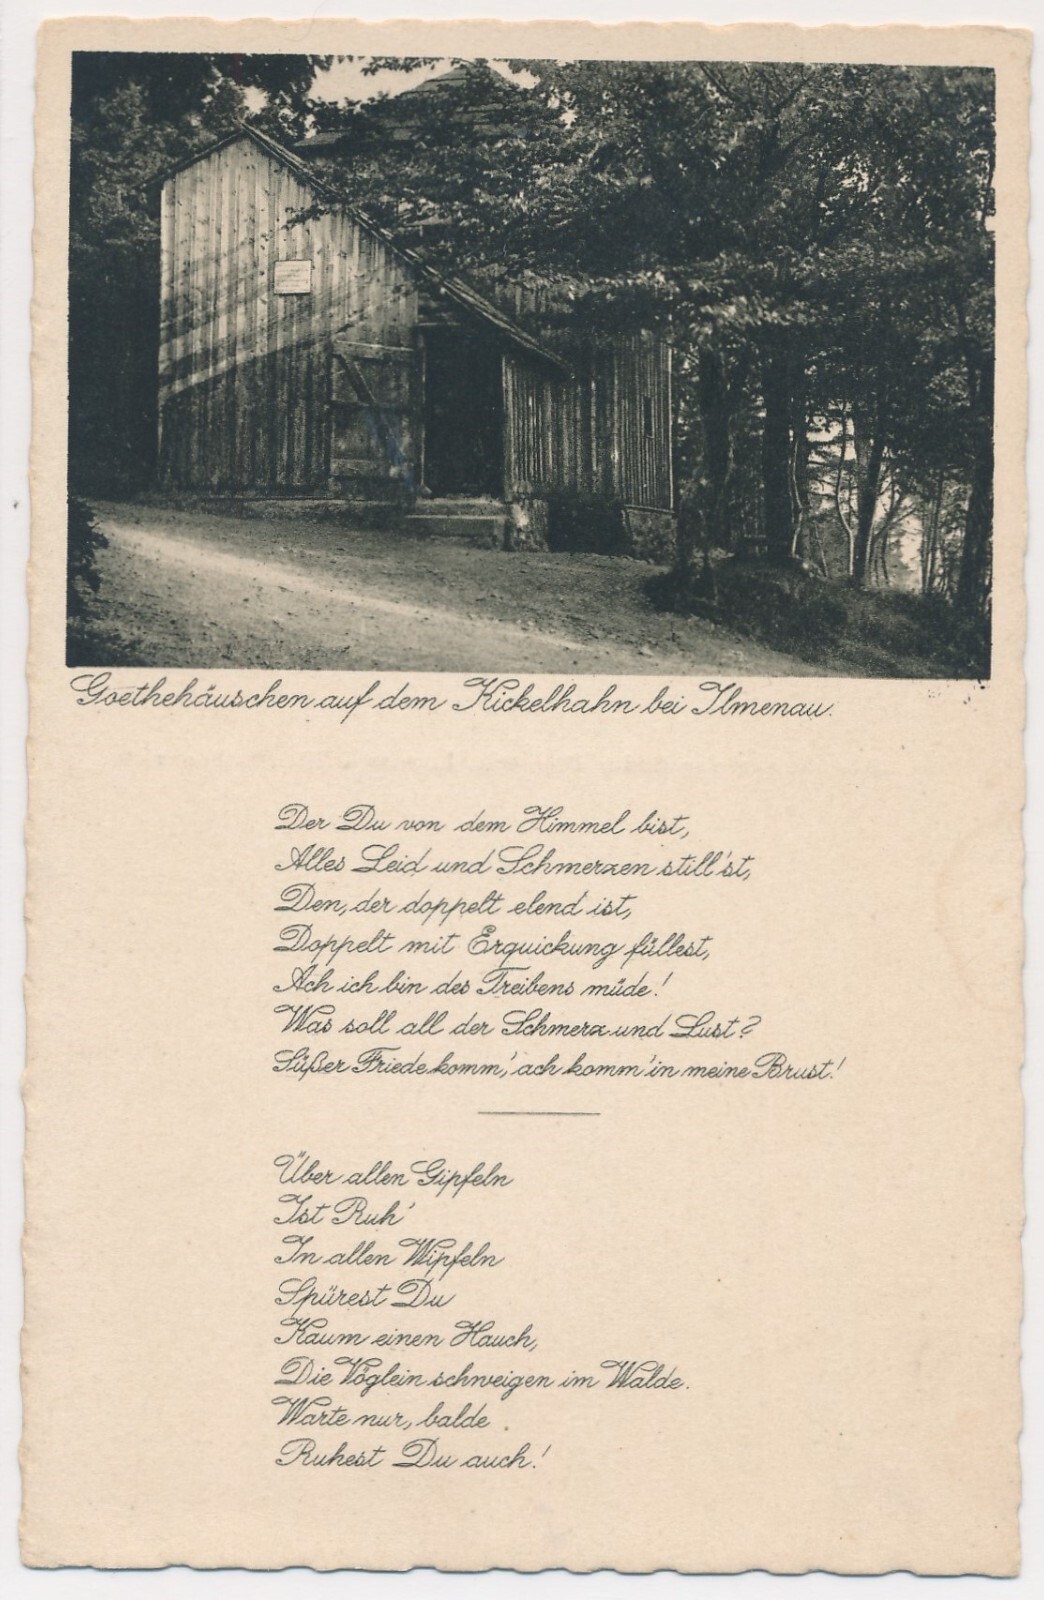 Goethehäuschen auf dem Kickelhahn bei Ilmenau.
Der Du von dem Himmel bist,
Alles Leid und Schmerzen still'st,
Den, der doppelt elend ist,
Doppelt mit Erquickung füllest,
Ach ich bin des Treibens müde!
Was soll all der Schmerz und Lust?
Süßer Friede komm', ach komm' in meine Brust!
Über allen Gipfeln
Ist Ruh'
In allen Wipfeln
Spürest Du
Kaum einen Hauch,
Die Vöglein schweigen im Walde.
Warte nur, balde
Ruhest Du auch!